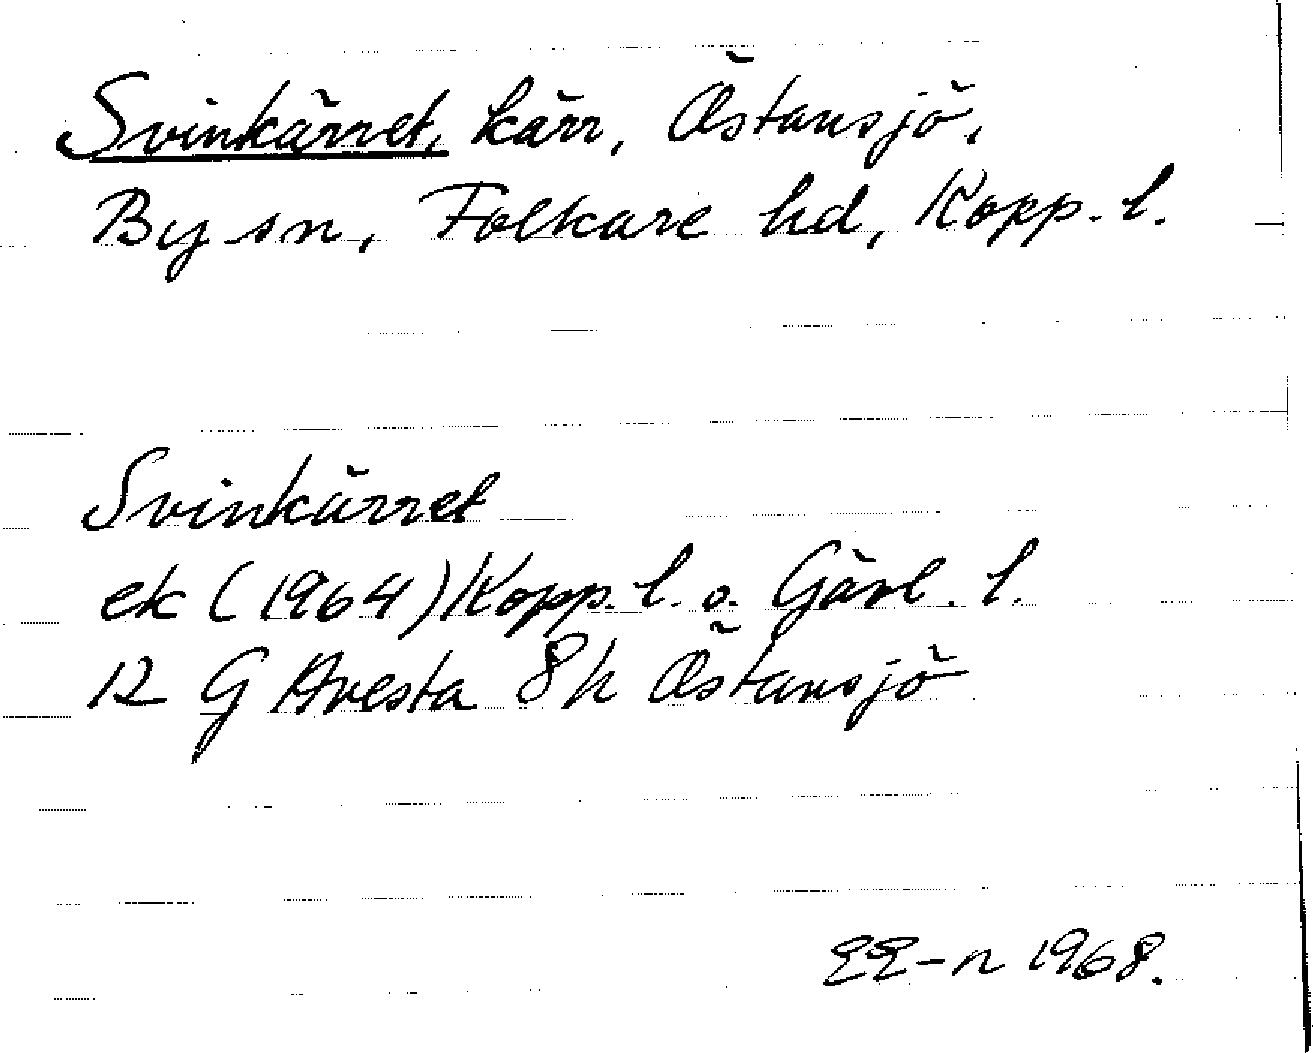 Svinkärret, kärr, Östansjö,
By sn, Folkare hd, Kopp. l.
Svinkärret
ek (1964) Kopp. l. o. Gävl. l.
12 G Avesta 8h Östansjö
EE-n 1968.